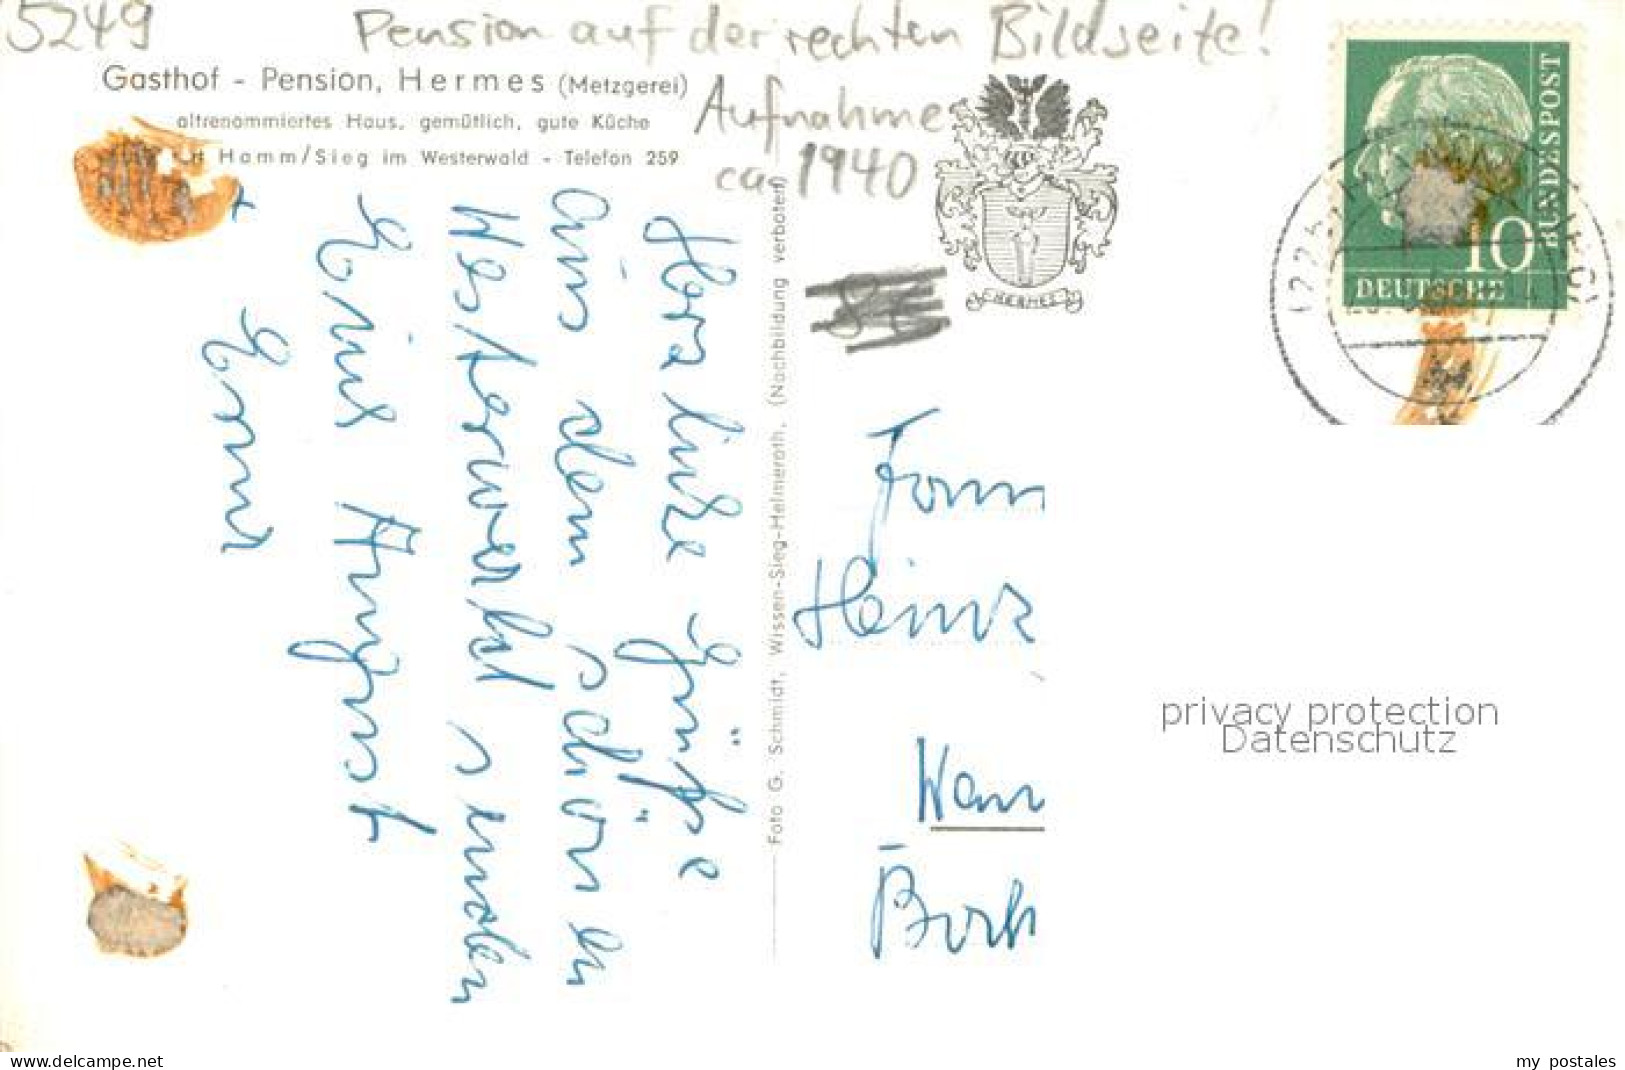 5249
Pension auf der rechten Bildseite!
Aufnahme
ca. 1940
Gasthof - Pension, Hermes (Metzgerei)
altrenommiertes Haus, gemütlich, gute Küche
Hamm/Sieg im Westerwald - Telefon 259
HERMES
BUNDESPOST
10
DEUTSCHE
Herzliche Grüße
aus dem schönen
Westerwald senden
August
Foto G. Schmidt, Wissen-Sieg-Helmeroth, (Nachbildung verboten)
Heinz
privacy protection
Datenschutz
www.delcampe.net
my_postales